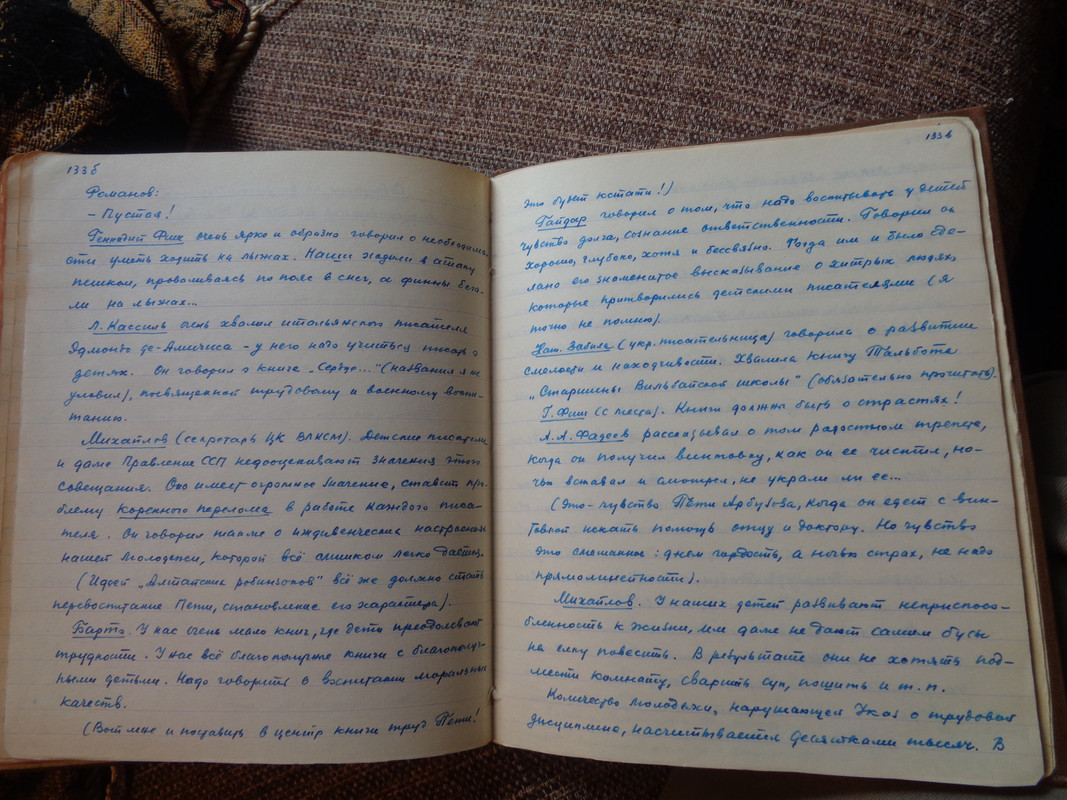 133б
Романов:
– Пустая!
Геннадий Фиш очень ярко и образно говорил о необходимо-
сти уметь ходить на лыжах. Наши ходили в атаку
пешком, проваливаясь по пояс в снег, а финны бега-
ли на лыжах...
Л. Кассиль очень хвалил итальянского писателя
Эдмондо де-Амичиса – у него надо учиться писать о
детях. Он говорил о книге „Сердце..." (названия я не
уловил), посвященной трудовому и военному воспи-
танию.
Михайлов (секретарь ЦК ВЛКСМ). Детские писатели
и даже Правление ССП недооценивают значения этого
совещания. Оно имеет огромное значение, ставит про-
блему коренного перелома в работе каждого писа-
теля. Он говорил также о иждивенческих настроениях
нашей молодежи, которой всё слишком легко дается.
(Идеей „Алтайских робинзонов" всё же должно стать
перевоспитание Пети, становление его характера).
Барто. У нас очень мало книг, где дети преодолевают
трудности. У нас всё благополучные книги с благополуч-
ными детьми. Надо говорить о воспитании моральных
качеств.
(Вот мне и поставить в центр книги труд Пети!
133в
Это будет кстати!)
Гайдар говорил о том, что надо воспитывать у детей
чувство долга, сознание ответственности. Говорил он
хорошо, глубоко, хотя и бессвязно. Тогда им и было сде-
лано его знаменитое высказывание о хитрых людях,
которые притворились детскими писателями (я
точно не помню).
Нат. Забила (укр. писательница) говорила о развитии
смелости и находчивости. Хвалила книгу Тальбота
„Старшины Вильбайской школы" (обязательно прочитать).
Г. Фиш (с места). Книги должны быть о страстях!
А. А. Фадеев рассказывал о том радостном трепете,
когда он получил винтовку, как он ее чистил, но-
чью вставал и смотрел, не украли ли ее...
(Это – чувство Пети Арбузова, когда он едет с вин-
товкой искать помощь отцу и доктору. Но чувство
это смешанное: днем гордость, а ночью страх, не надо
прямолинейности).
Михайлов. У наших детей развивают неприспосо-
бленность к жизни, им даже не дают самим бусы
на елку повесить. В результате они не хотят под-
мести комнату, сварить суп, пошить и т. п.
Количество молодежи, нарушающей Указ о трудовой
дисциплине, насчитывается десятками тысяч. В